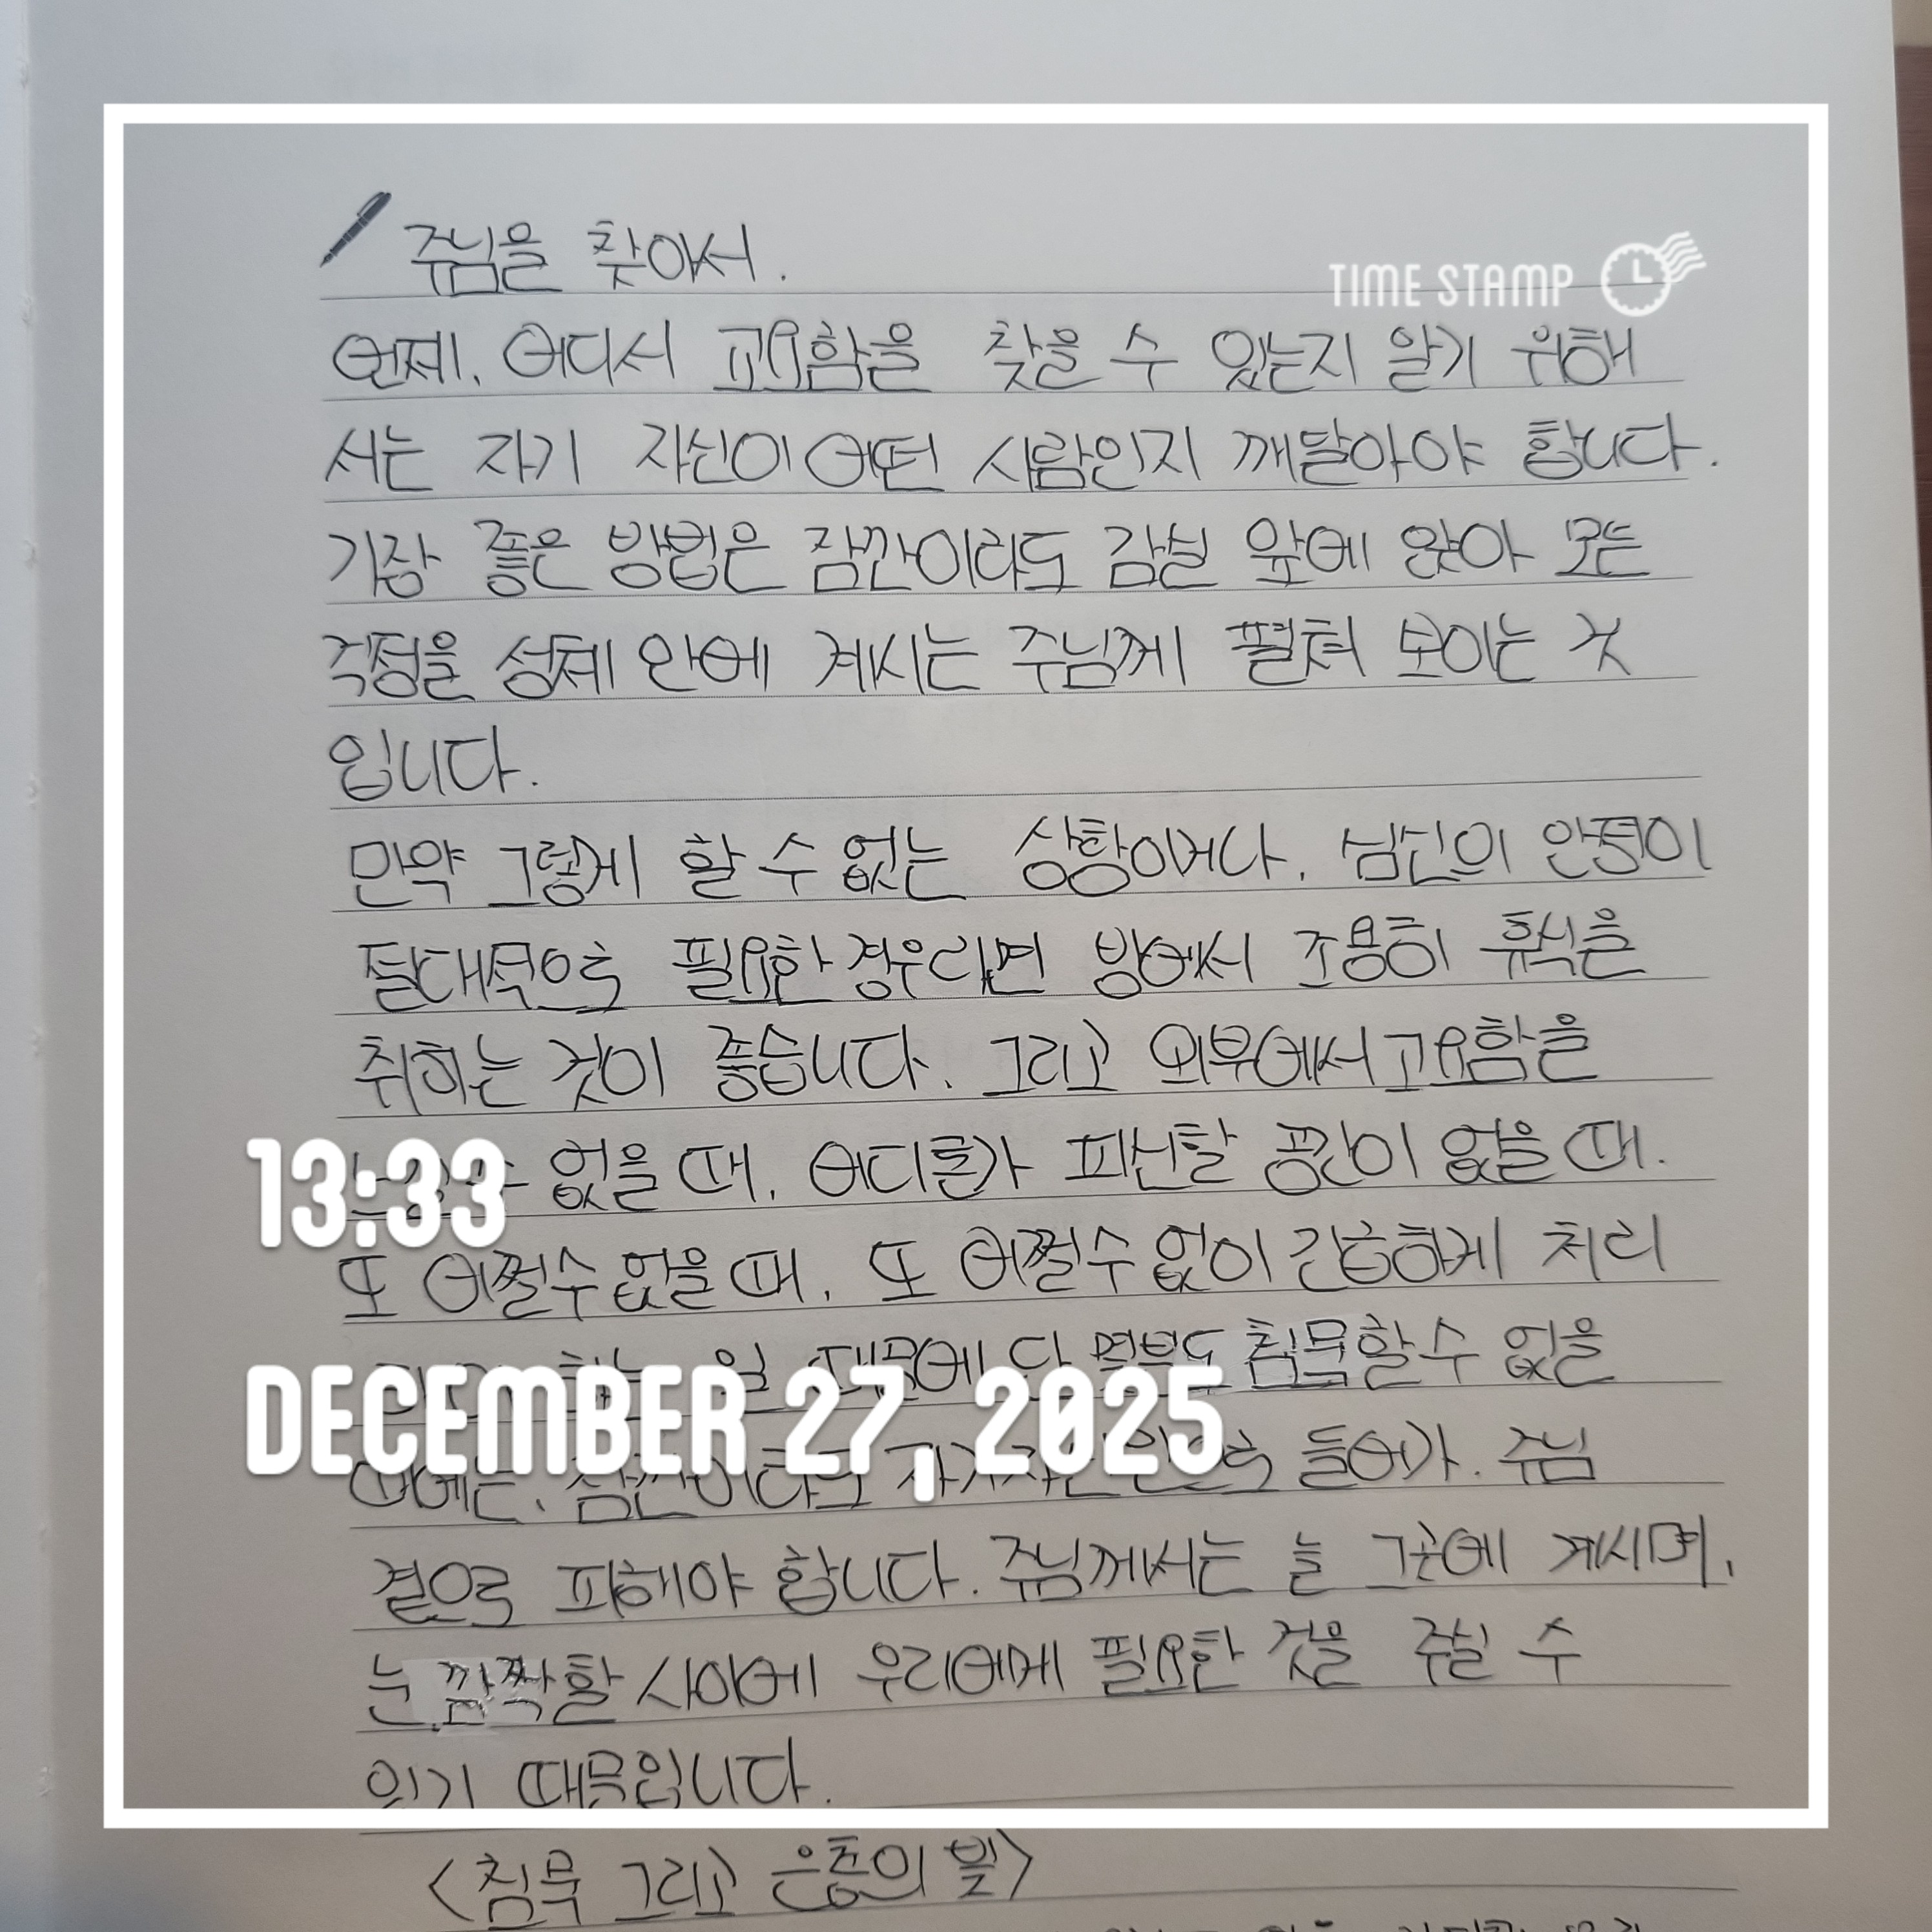 주님을 찾아서.
TIME STAMP
언제, 어디서 고요함을 찾을 수 있는지 알기 위해
서는 자기 자신이 어떤 사람인지 깨달아야 합니다.
가장 좋은 방법은 잠깐이라도 감실 앞에 앉아 모든
걱정을 성체 안에 계시는 주님께 펼쳐 보이는 것
입니다.
만약 그렇게 할 수 없는 상황이거나, 심신의 안정이
절대적으로 필요한 경우라면 방에서 조용히 휴식을
취하는 것이 좋습니다. 그리고 외부에서 고요함을
없을 때, 어디론가 피신할 공간이 없을 때,
13:33
또 어쩔수 없을 때, 또 어쩔수 없이 긴급하게 처리
일 때문에 단 몇분도 침묵할 수 없을
DECEMBER 27, 2025
잠깐이라도 자기자신 안으로 들어가, 주님
곁으로 피해야 합니다. 주님께서는 늘 그곳에 계시며,
눈 깜짝할 사이에 우리에게 필요한 것을 주실 수
있기 때문입니다.
<침묵 그리고 은총의 빛>